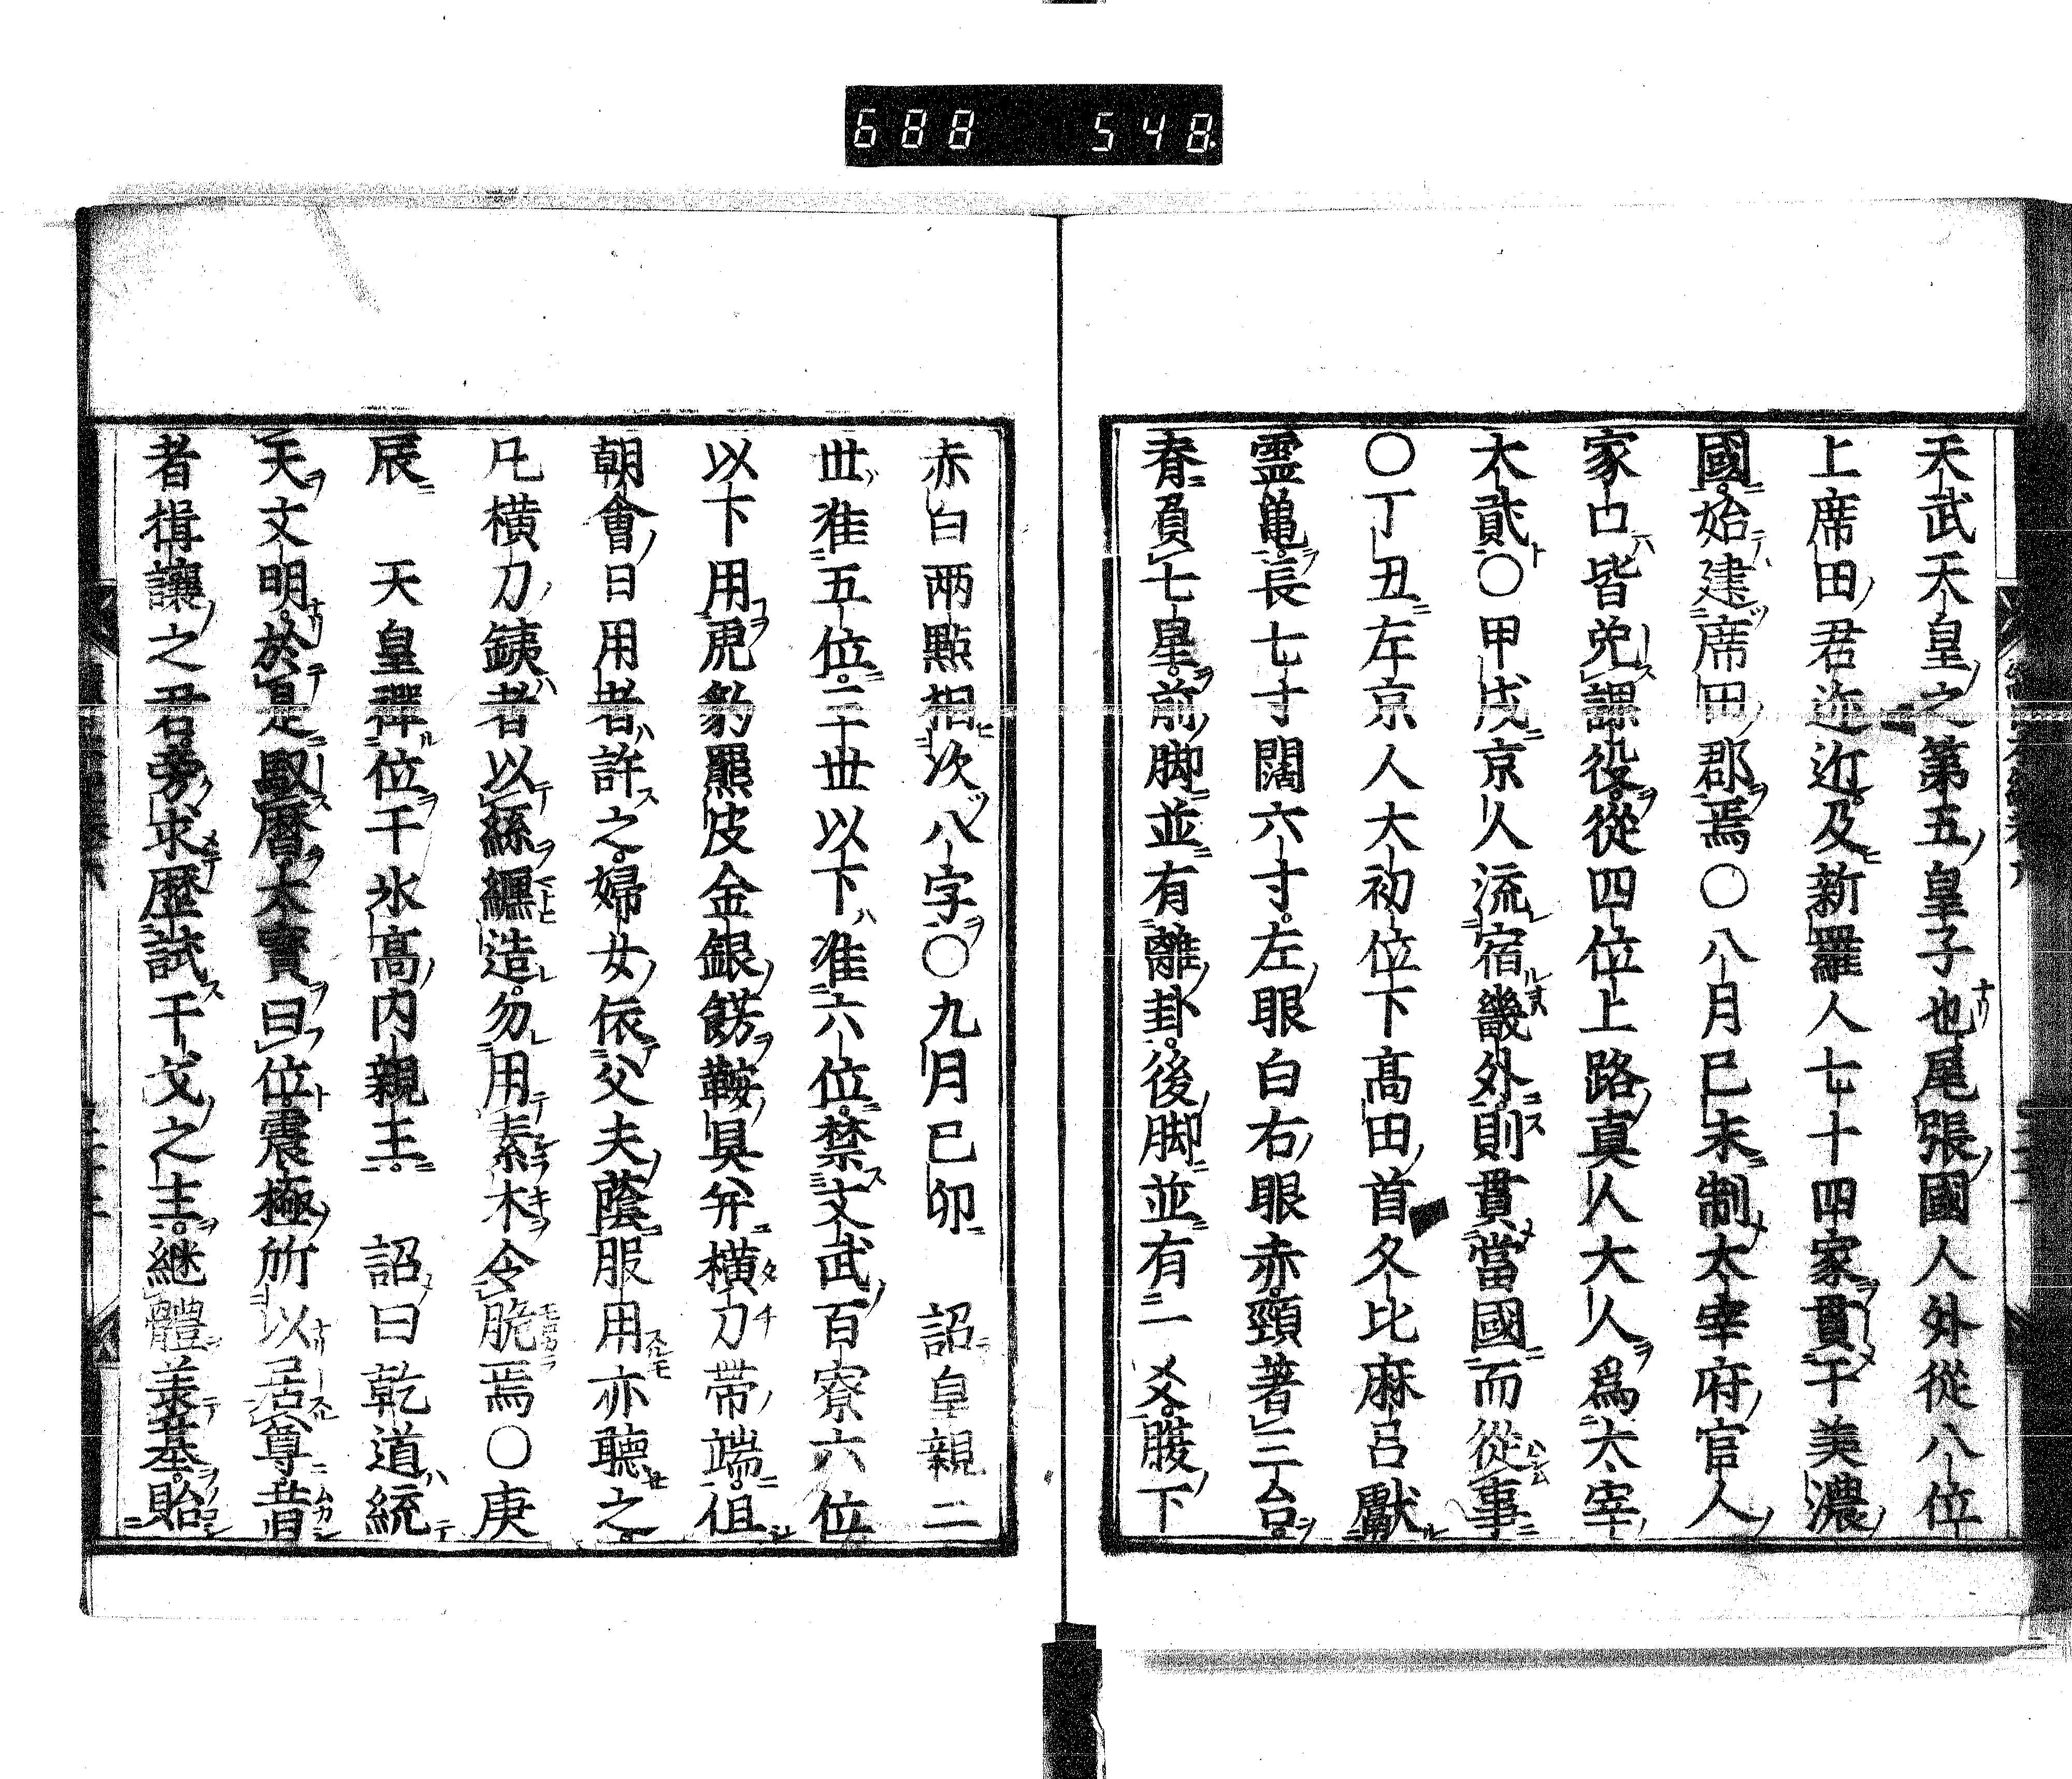 688 548
天武天皇之第五皇子也尾張國人外從八位
上席田君迩近及新羅人七十四家貫于美濃
國始建席田郡焉〇八月巳未制太宰府官人
家口皆免課役從四位上路真人大人爲太宰
大貳〇甲戌京人流宿畿外則貫當國而從事
〇丁丑左京人大初位下高田首久比麻呂獻
霊亀長七寸闊六寸左眼白右眼赤頸著三台
脊負七星前脚並有離卦後脚並有一爻腹下
赤白兩點相次八字〇九月巳卯　詔皇親二
世准五位三世以下准六位禁文武百寮六位
以下用虎豹羆皮金銀餝鞍具并横刀帶端但
朝會日用者許之婦女依父夫蔭服用亦聽之
凡横刀鋏者以絲纒造勿用素木令脆焉〇庚
辰　天皇禪位于氷高内親王　詔曰乾道統
天文明於是馭暦大寳曰位震極所以居尊昔
者揖讓之君旁求歴試干戈之主継體羕基貽